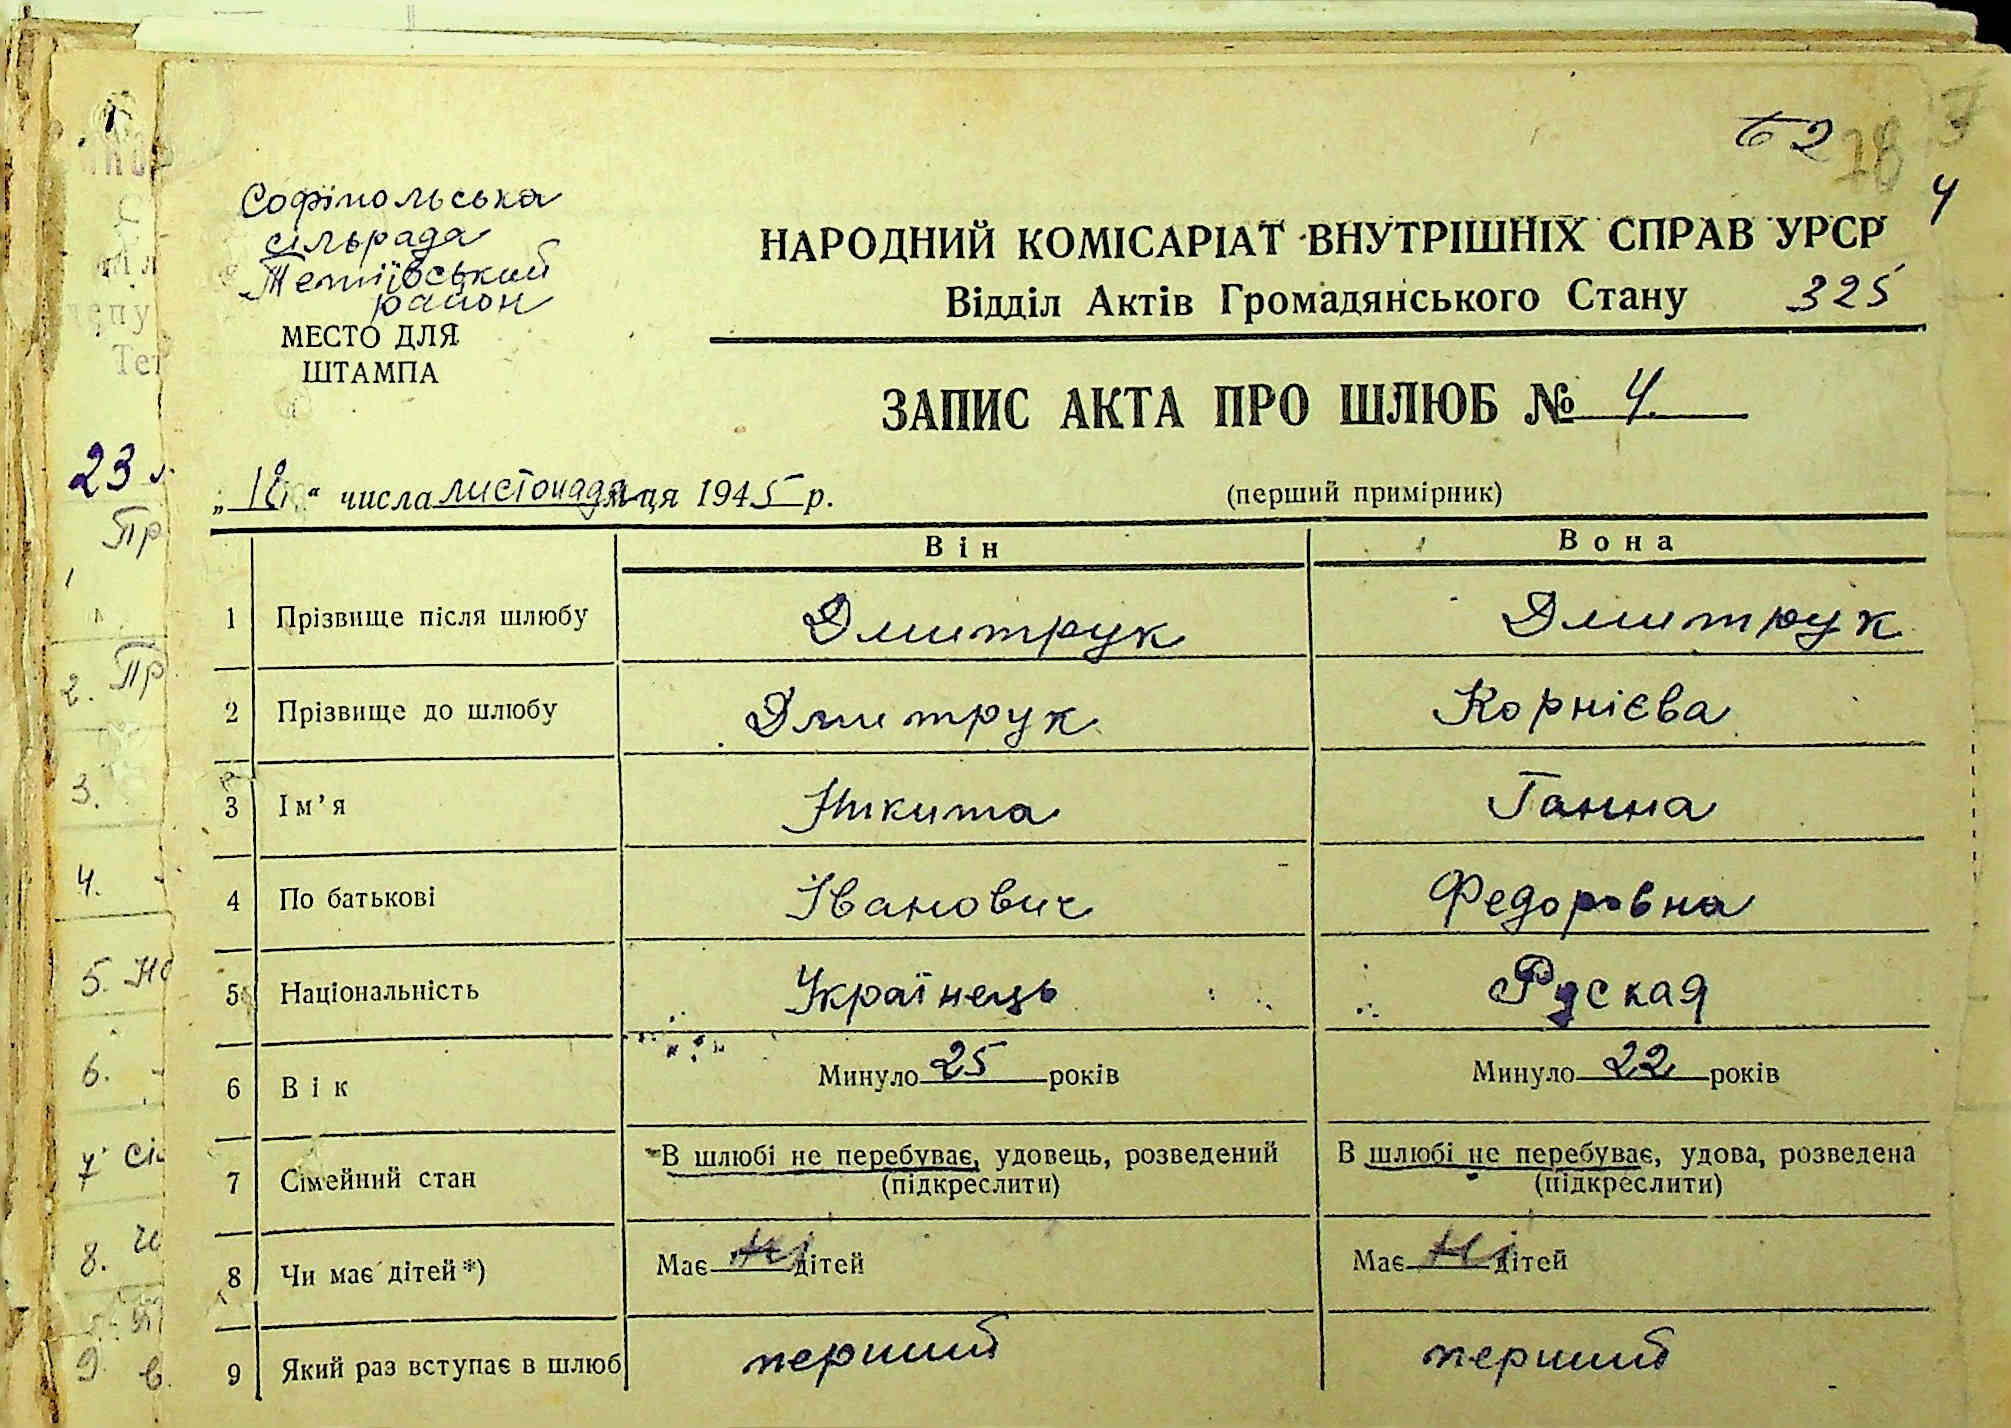 62 78
Софіпольська
сільрада
Тетіївський
район
МЕСТО ДЛЯ
ШТАМПА
4
НАРОДНИЙ КОМІСАРІАТ ВНУТРІШНІХ СПРАВ УРСР
Відділ Актів Громадянського Стану 325
ЗАПИС АКТА ПРО ШЛЮБ № 4.
„18“ числа листопада м-ця 1945 р. (перший примірник)
Він Вона
1 Прізвище після шлюбу Дмитрук Дмитрук
2 Прізвище до шлюбу Дмитрук Корнієва
3 Ім’я Никита Ганна
4 По батькові Іванович Федоровна
5 Національність Українець Руская
6 Вік Минуло 25 років Минуло 22 років
7 Сімейний стан В шлюбі не перебуває, удовець, розведений В шлюбі не перебуває, удова, розведена
(підкреслити) (підкреслити)
8 Чи має дітей*) Має ні дітей Має ні дітей
9 Який раз вступає в шлюб перший перший
23
Пр
2. Пр
3.
4.
5. Но
6.
7 сі
8.
9. в.